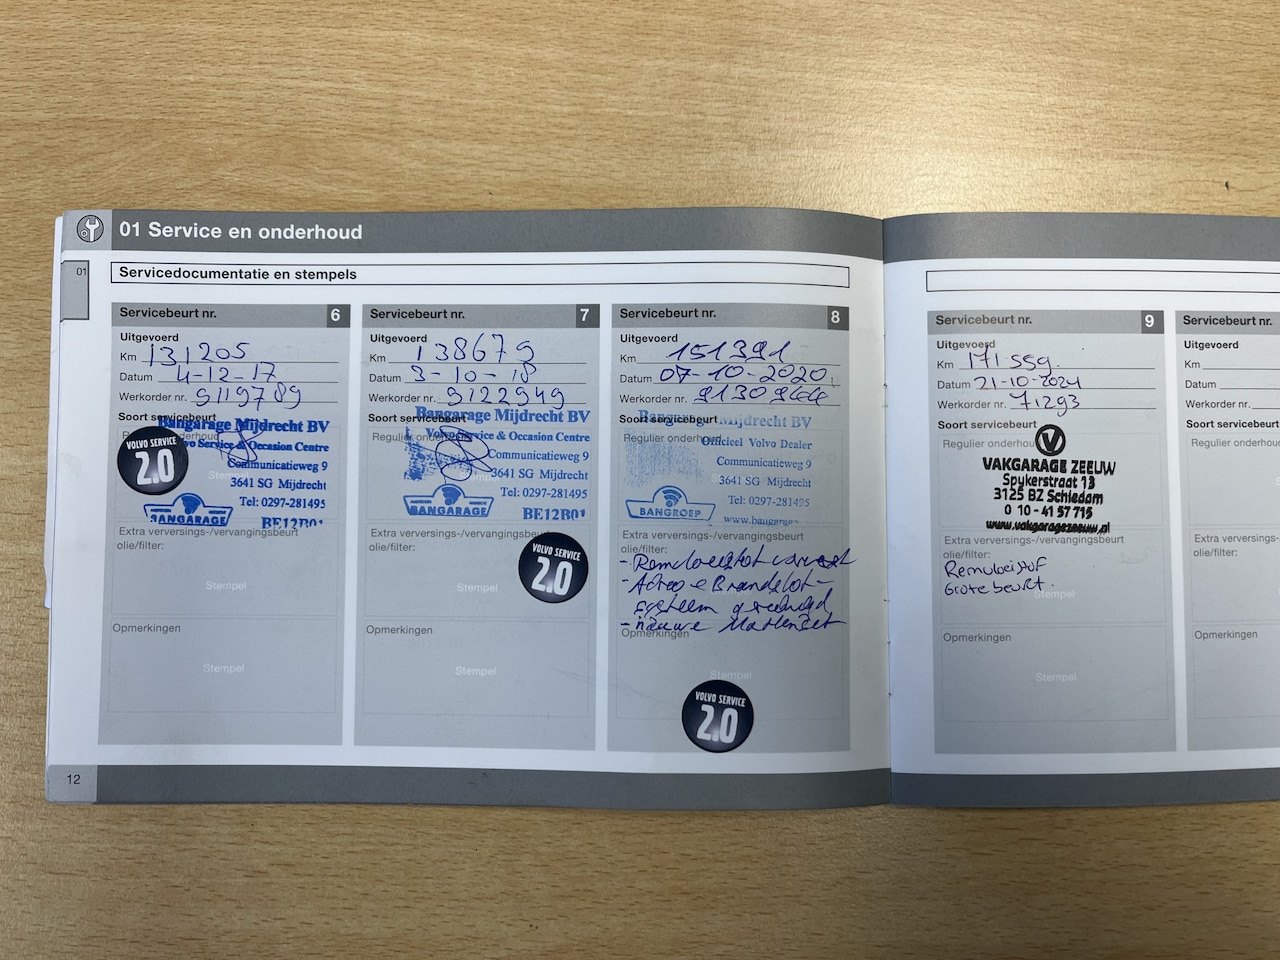 01 Service en onderhoud
01
Servicedocumentatie en stempels
Servicebeurt nr. 6
Uitgevoerd
Km 131205
Datum 4-12-17
Werkorder nr. 9119789
Soort servicebeurt
Bangarage Mijdrecht BV
Volvo Service & Occasion Centre
Communicatieweg 9
3641 SG Mijdrecht
Tel: 0297-281495
BANGARAGE
BE12B01
VOLVO SERVICE
2.0
Extra verversings-/vervangingsbeurt
olie/filter:
Stempel
Opmerkingen
Stempel
Servicebeurt nr. 7
Uitgevoerd
Km 138679
Datum 3-10-18
Werkorder nr. 9122949
Soort servicebeurt
Bangarage Mijdrecht BV
Regulier onderhoud
Volvo Service & Occasion Centre
Communicatieweg 9
3641 SG Mijdrecht
Tel: 0297-281495
BANGARAGE
BE12B01
Extra verversings-/vervangingsbeurt
olie/filter:
VOLVO SERVICE
2.0
Stempel
Opmerkingen
Stempel
Servicebeurt nr. 8
Uitgevoerd
Km 151391
Datum 07-10-2020
Werkorder nr. 9130944
Soort servicebeurt
Bangarage Mijdrecht BV
Regulier onderhoud
Officieel Volvo Dealer
Communicatieweg 9
3641 SG Mijdrecht
Tel: 0297-281495
BANGROEP
Extra verversings-/vervangingsbeurt
olie/filter:
- Remvloeistof ververst
systeem gereinigd
- nieuwe Mattenset
Opmerkingen
Stempel
VOLVO SERVICE
2.0
12
Servicebeurt nr. 9
Uitgevoerd
Km 171559.
Datum 21-10-2024
Werkorder nr. 71293
Soort servicebeurt
Regulier onderhoud
V
VAKGARAGE ZEEUW
Spykerstraat 13
3125 BZ Schiedam
0 10 - 41 57 715
www.vakgaragezeeuw.nl
Extra verversings-/vervangingsbeurt
olie/filter:
Remvloeistof
Grote beurt.
Stempel
Opmerkingen
Stempel
Servicebeurt nr.
Uitgevoerd
Km
Datum
Werkorder nr.
Soort servicebeurt
Regulier onderhoud
Extra verversings-
olie/filter:
Opmerkingen